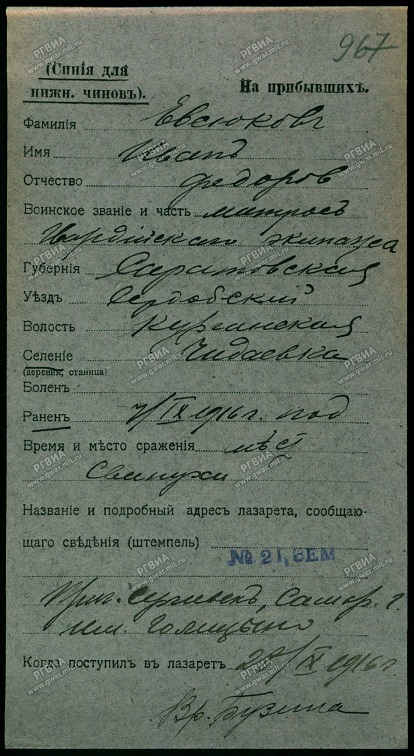 967
(Синія для
нижн. чиновъ).
На прибывшихъ.
Фамилія Евсюковъ
Имя Иванъ
Отчество Федоров
Воинское званіе и часть матросъ
Гвардійскаго экипажа
Губернія Саратовская
Уѣздъ Сердобскій
Волость Курганская
Селеніе Чидаевка
(деревня, станица)
Боленъ
Раненъ 7/IX 1916 г. под
Время и мѣсто сраженія мѣст
Свинухи
Названіе и подробный адресъ лазарета, сообщаю-
щаго свѣдѣнія (штемпель)
№ 21, ЗЕМ
Сергіевск, Самар. г.
им. Голицыно
Когда поступилъ въ лазаретъ 20/IX 1916 г.
Вр. Бузина
РГВИА
www.gwar.mil.ru